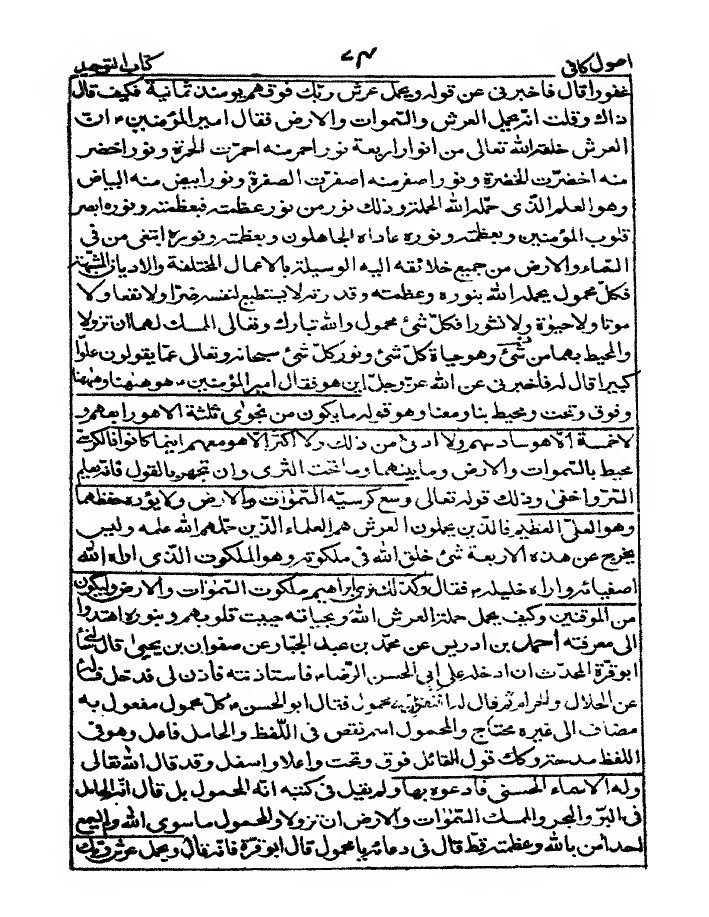 اصول کافی ٧٤ کتاب التوحید
غفورا قال فاخبرنی عن قوله ویحمل عرش ربّك فوقهم یومئذ ثمانیة فکیف قال
ذاك وقلت انّه یحمل العرش والسّموات والارض فقال امیرالمؤمنین ع انّ
العرش خلقه الله تعالی من انوار اربعة نور احمر منه احمرّت الحمرة ونور اخضر
منه اخضرّت الخضرة ونور اصفر منه اصفرّت الصفرة ونور ابیض منه البیاض
وهو العلم الّذی حمّله الله الحملة وذلك نور من نور عظمته فبعظمته ونوره ابصر
قلوب المؤمنین وبعظمته ونوره عاداه الجاهلون وبعظمته ونوره ابتغی من فی
السّماء والارض من جمیع خلائقه الیه الوسیلة بالاعمال المختلفة والادیان المشتبهة
فکلّ محمول یحمله الله بنوره وعظمته وقدرته لا یستطیع لنفسه ضرّا ولا نفعا ولا
موتا ولا حیوة ولا نشورا فکلّ شئ محمول والله تبارك وتعالی الممسك لهما ان تزولا
والمحیط بهما من شئ وهو حیاة کلّ شئ ونور کلّ شئ سبحانه وتعالی عمّا یقولون علوّا
کبیرا قال له فاخبرنی عن الله عزّ وجلّ این هو فقال امیرالمؤمنین ع هو هیهنا وهیهنا
وفوق وتحت ومحیط بنا ومعنا وهو قوله ما یکون من نجوی ثلثة الا هو رابعهم و
لا خمسة الّا هو سادسهم ولا ادنی من ذلك ولا اکثر الّا هو معهم اینما کانوا فالکرسیّ
محیط بالسّموات والارض وما بینهما وما تحت الثری وان تجهر بالقول فانّه یعلم
السّر واخفی وذلك قوله تعالی وسع کرسیّه السّموات والارض ولا یؤده حفظهما
وهو العلیّ العظیم فالّذین یحملون العرش هم العلماء الّذین حمّلهم الله علمه ولیس
یخرج عن هذه الاربعة شئ خلق الله فی ملکوته وهو الملکوت الّذی اراه الله
اصفیائه واراه خلیله ع فقال وکذلك نری ابراهیم ملکوت السّموات والارض ولیکون
من الموقنین وکیف یحمل حملة العرش الله وبحیاته حییت قلوبهم وبنوره اهتدوا
الی معرفته احمد بن ادریس عن محمّد بن عبد الجبّار عن صفوان بن یحیی قال سألنی
ابو قرّة المحدّث ان ادخله علی ابی الحسن الرّضاء فاستاذنته فاذن لی فدخل فسأله
عن الحلال والحرام ثم قال له محمول فقال ابو الحسن ع کلّ محمول مفعول به
مضاف الی غیره محتاج والمحمول اسم نقص فی اللّفظ والحامل فاعل وهو فی
اللّفظ مدحة وکذلك قول القائل فوق وتحت واعلا واسفل وقد قال الله تعالی
وله الاسماء الحسنی فادعوه بها ولم یقل فی کتبه انّه المحمول بل قال انّه الحامل
فی البرّ والبحر والممسك السّموات والارض ان تزولا والمحمول ما سوی الله ولم یسمع
احد امن بالله وعظمته قطّ قال فی دعائه یا محمول قال ابو قرّة فانّه قال ویحمل عرش ربّك